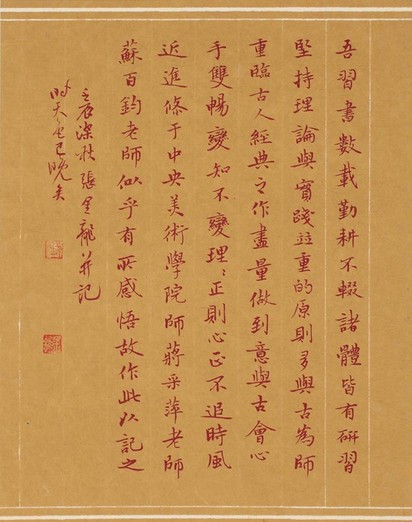 吾習書數載勤耕不輟諸體皆有研習
堅持理論與實踐並重的原則多與古為師
重臨古人經典之作盡量做到意與古會心
手雙暢變知不變理々正則心正不追時風
近進修于中央美術學院師蔣采萍老師
蘇百鈞老師似乎有所感悟故作此以記之
壬辰深秋張龍并記
時天色已晚矣